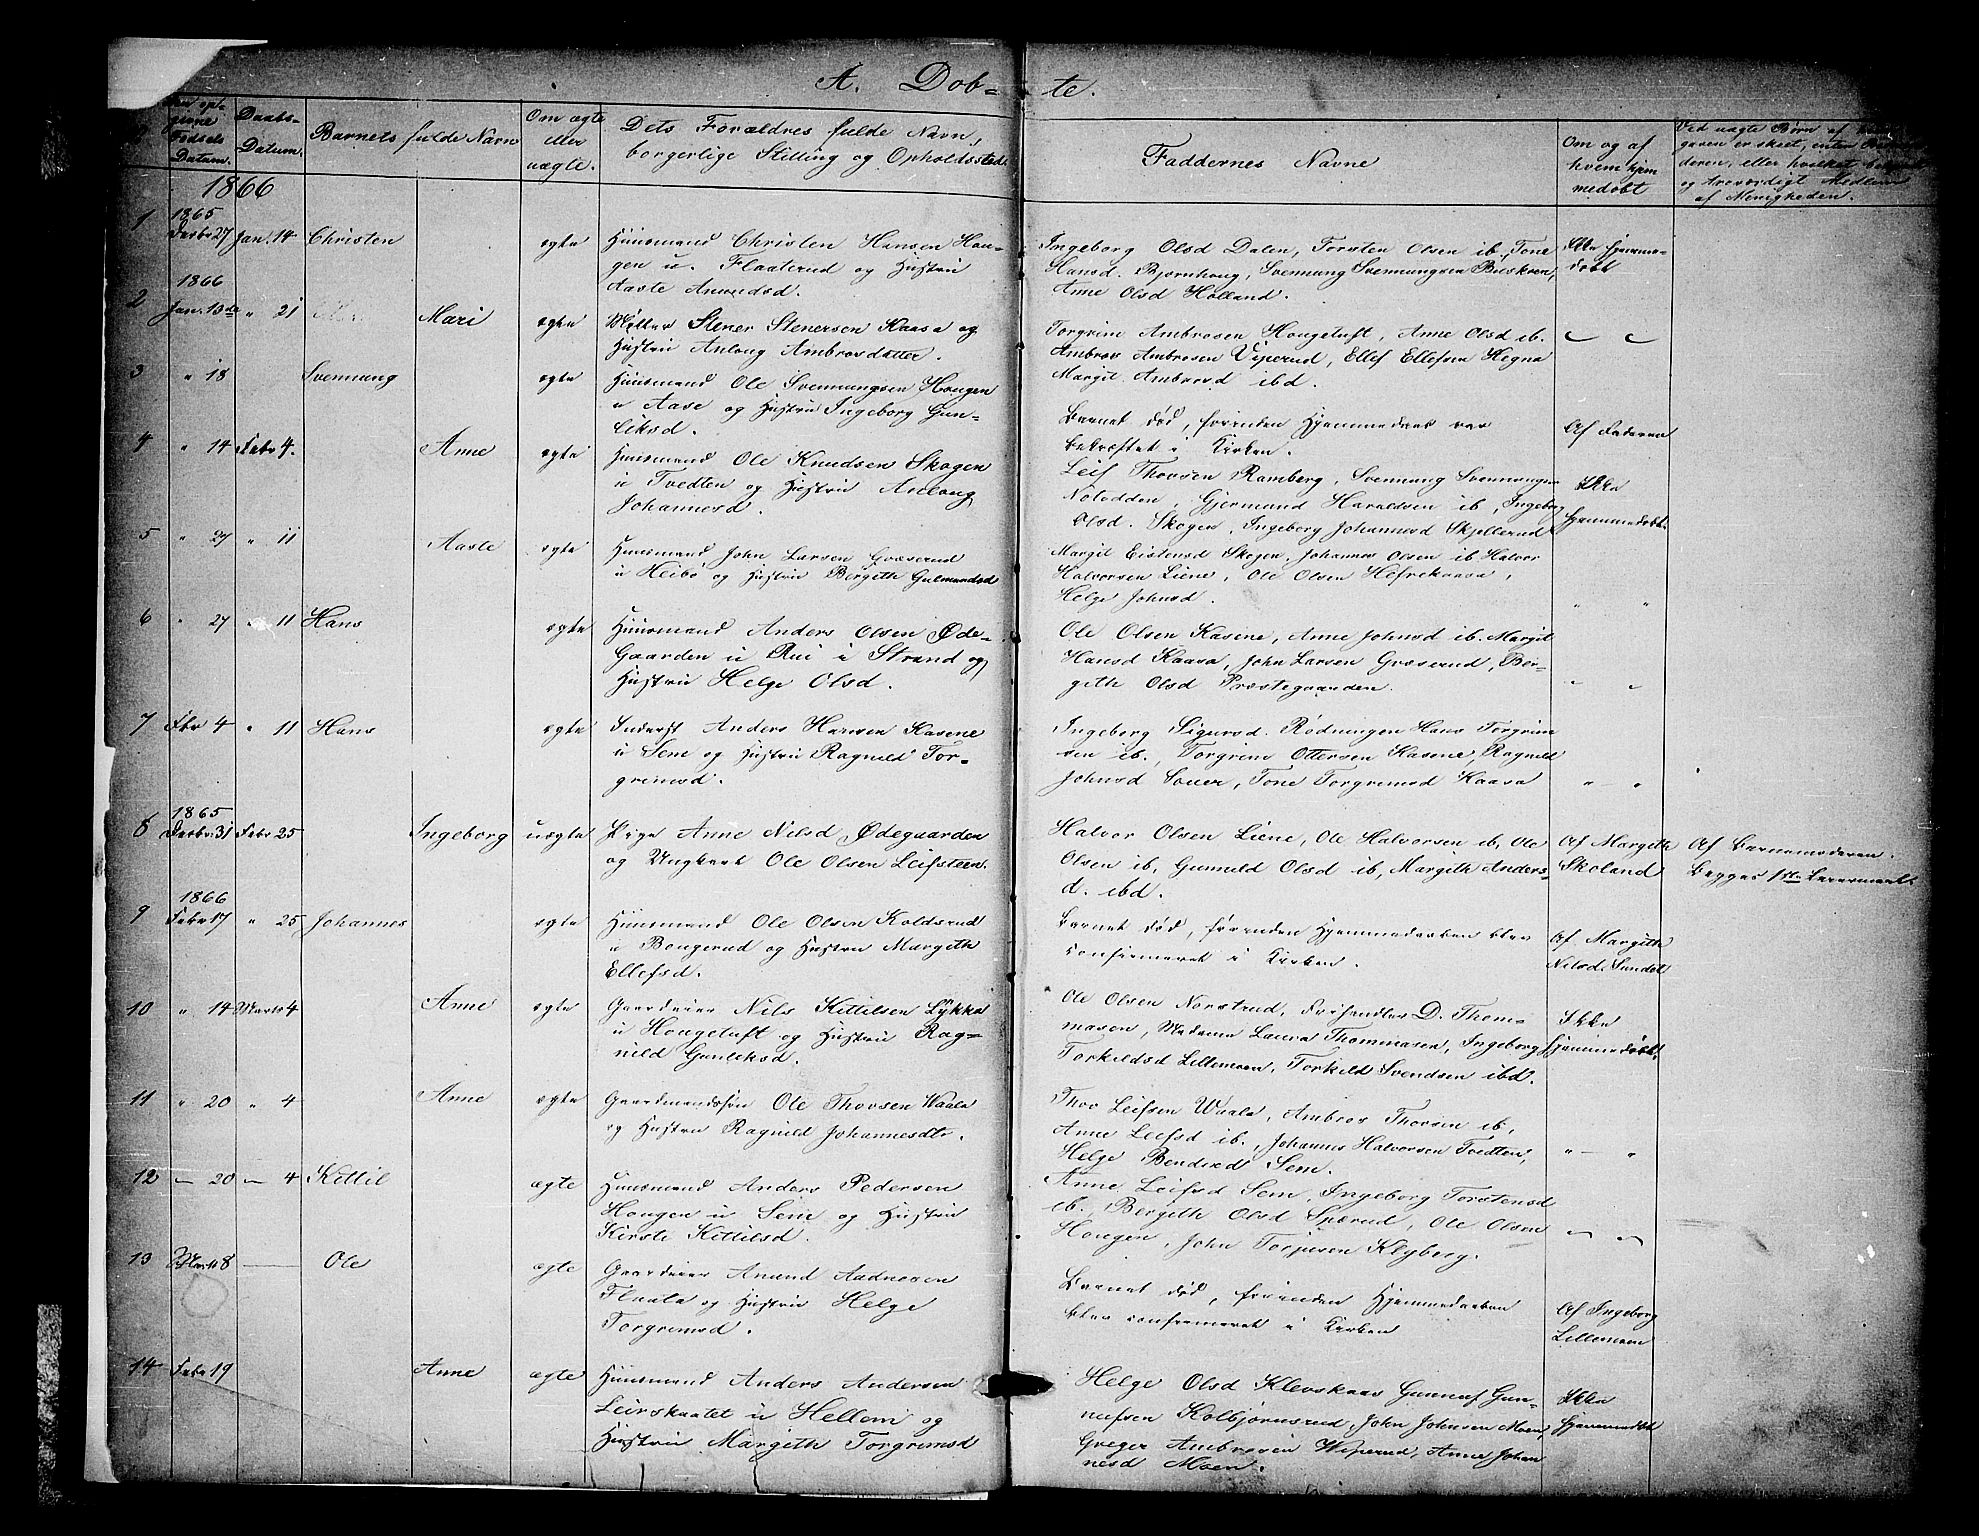 A. Dob- te.
Den op-
givne
Fødsels
Datum.
Daabs-
Datum.
Barnets fulde Navn
Om ægte
eller
uægte.
Dets Forældres fulde Navn,
borgerlige Stilling og Opholdssted
Faddernes Navne
Om og af
hvem hjem
medøbt
Ved uægte Børn af
gaven er skeet, enten
deren, eller hvilket
og troværdigt Medlem
af Menigheden.
1866
1 1865 Decbr 27 Jan. 14 Christen ægte Huusmand Christen Hansen Hau-
gen u. Flaaterud og Hustru
Aaste Amundsd.
Ingeborg Olsd Dalen, Torsten Olsen ib, Tone
Hansd. Bjørnhaug, Svennung Svennungsen Breskøen,
Anne Olsd Holland.
Ikke hjemme-
døbt
2 1866 Jan. 13de " 21 Mari ægte Møller Stener Stenersen Kaasa og
Hustru Anlaug Ambrosdatter.
Torgrim Ambrosen Hougetuft, Anne Olsd ib.
Ambros Ambrosen Viperud, Ellef Ellefsen Hegna
Margit Ambrosd ibd.
3 " 18 Svennung ægte Huusmand Ole Svennungsen Hougen
u Aase og Hustru Ingeborg Gun-
liksd.
Barnet død, førinden Hjemmedaab var
bekræftet i Kirken.
Af Faderen
4 " 14 Febr 4. Anne ægte Huusmand Ole Knudsen Skogen
u Tvedten og Hustru Anlaug
Johannesd.
Leif Thorsen Ramberg, Svennung Svennungsen
Notodden, Gjermund Haraldsen ib, Ingeborg
Olsd. Skogen, Ingeborg Johannesd Skjellerud
Ikke
hjemmedøbt.
5 " 27 " 11 Aaste ægte Huusmand John Larsen Græserud
u Heibø og Hustru Bergith Gulmundsd
Margit Eistensd Skogen, Johannes Olsen ib Halvor
Halvorsen Liene, Ole Olsen Hefrekaasa,
Helge Johnsd.
" "
6 " 27 " 11 Hans ægte Huusmand Anders Olsen Øde-
Gaarden u Rui i Strand og
Hustru Helge Olsd.
Ole Olsen Kasene, Anne Johnsd ib. Margit
Hansd Kaasa, John Larsen Græserud, Ber-
gith Olsd Præstegaarden.
" "
7 Febr 4 " 11 Hans ægte Inderst Anders Hansen Kasene
u Sem og Hustru Ragnild Tor-
grimsd.
Ingeborg Sigursd. Rødningen Hans Torgrim
sen ib., Torgrim Ottersen Kasene, Ragnild
Johnsd Sauer, Tone Torgrimsd Kaasa
" - "
8 1865 Decbr 31 Febr 25 Ingeborg uægte Pige Anne Nilsd Ødegaarden
og Ungkarl Ole Olsen Leifsteen.
Halvor Olsen Liene, Ole Halvorsen ib, Ole
Olsen ib, Gunnuld Olsd ib, Margith Anders-
d. ibd.
Af Margith
Skoland
Af Barnemoderen.
Begges 1ste Leiermaal.
9 1866 Febr 17 " 25 Johannes ægte Huusmand Ole Olsen Koldsrud
u Bougerud og Hustru Margith
Ellefsd.
Barnet død, førinden Hjemmedaaben blev
confirmeret i Kirken.
Af Margith
Nilsd Sundet
10 " 14 Marts 4 Anne ægte Gaardeier Nils Kittilsen Lykka
u Hougetuft og Hustru Rag-
nild Gunleksd.
Ole Olsen Norstrud, Forhandler D. Thom-
masen, Madame Laura Thommasen, Ingeborg
Torkildsd Lillemoen, Torkild Svendsen ibd.
Ikke
hjemmedøbt.
11 " 20 " 4 Anne ægte Gaardmandssøn Ole Thorsen Waala
og Hustru Ragnild Johannesdtr.
Thor Leifsen Waala, Ambros Thorsen ib,
Anne Leifsd ib., Johannes Halvorsen Tvedten,
Helge Bendixd Sem.
" - "
12 - 20 - 4 Kittil ægte Huusmand Anders Pedersen
Hougen u Sem og Hustru
Kirste Kittilsd.
Anne Leifsd Sem, Ingeborg Torstensd
ib., Bergith Olsd Spærud, Ole Olsen
Hougen, John Torjusen Klyberg.
13 Marts 8 Ole ægte Gaardeier Amund Aadnesen
Flaata og Hustru Helge
Torgrimsd.
Barnet død, førinden Hjemmedaaben
blev confirmeret i Kirken
Af Ingeborg
Lillemoen
14 Febr 19 Anne ægte Huusmand Anders Andersen
Leirskaatet u Hellem og
Hustru Margith Torgrimsd
Helge Olsd Klevskaas Gunnuf Gun-
nufsen Kolbjørnsrud, John Johnsen Moen,
Greger Ambrosen Wiperud, Anne Johan
nesd Moen.
Ikke
hjemmedøbt